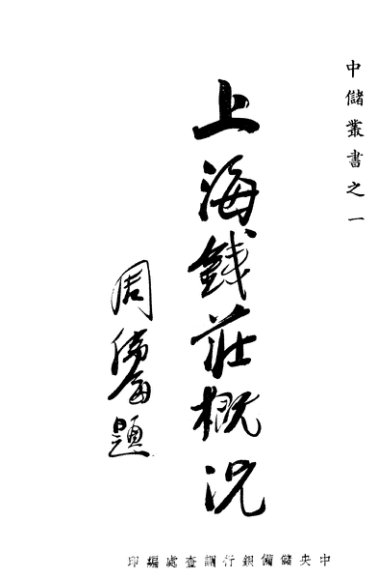 中儲叢書之一
上海錢莊概況
周題
中央儲備銀行調查處編印